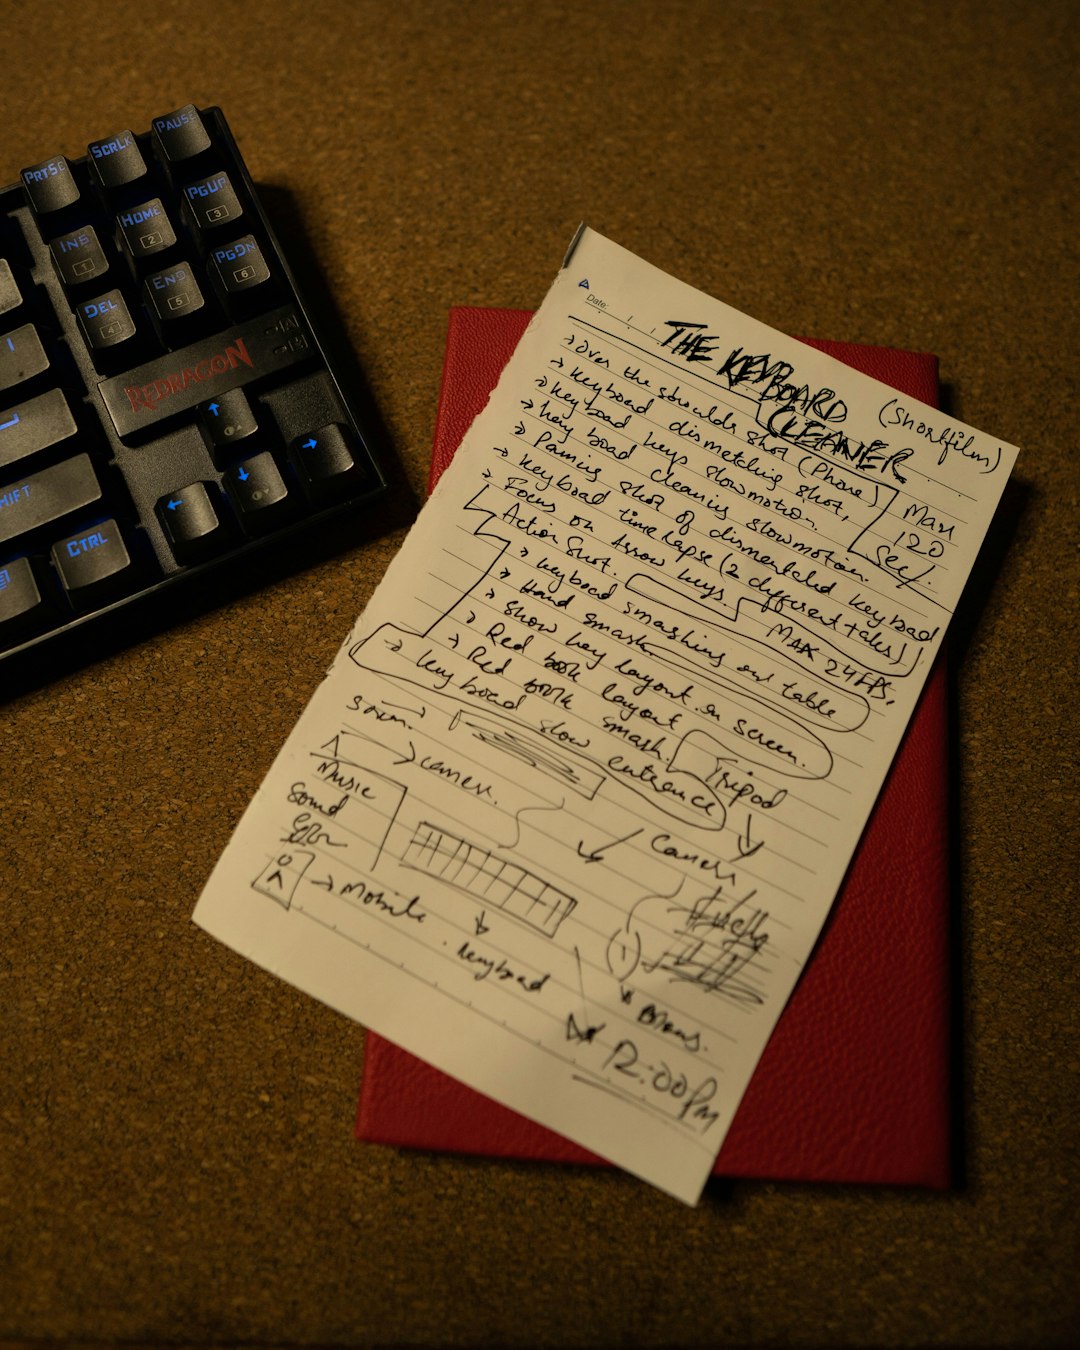 PrtSc
ScrLK
Pause
Ins
1
Home
2
PgUp
3
Del
4
End
5
PgDn
6
REDRAGON
Shift
Ctrl
Date:
THE KEYBOARD
CLEANER
(Shortfilm)
→ Over the shoulds shot (Phone)
→ Keyboard dismetching shot,
→ Keyboad keys slowmotion.
→ Key boad cleaning slowmotion.
→ Paning shot of dismentcled keyboad
→ Keyboad timelapse (2 different takes)
→ Focus on Arrow keys.
Max
120
Sec/.
MAX 24FPS,
Action Shot.
→ Keyboad smashing our table
→ Hand smash
→ Show key layout on screen.
→ Red book layout
→ Red book smash.
→ Keyboad slow entrance
Tripod
camera.
Music
Sound
→ Mobile
Keyboad
12:00Pm